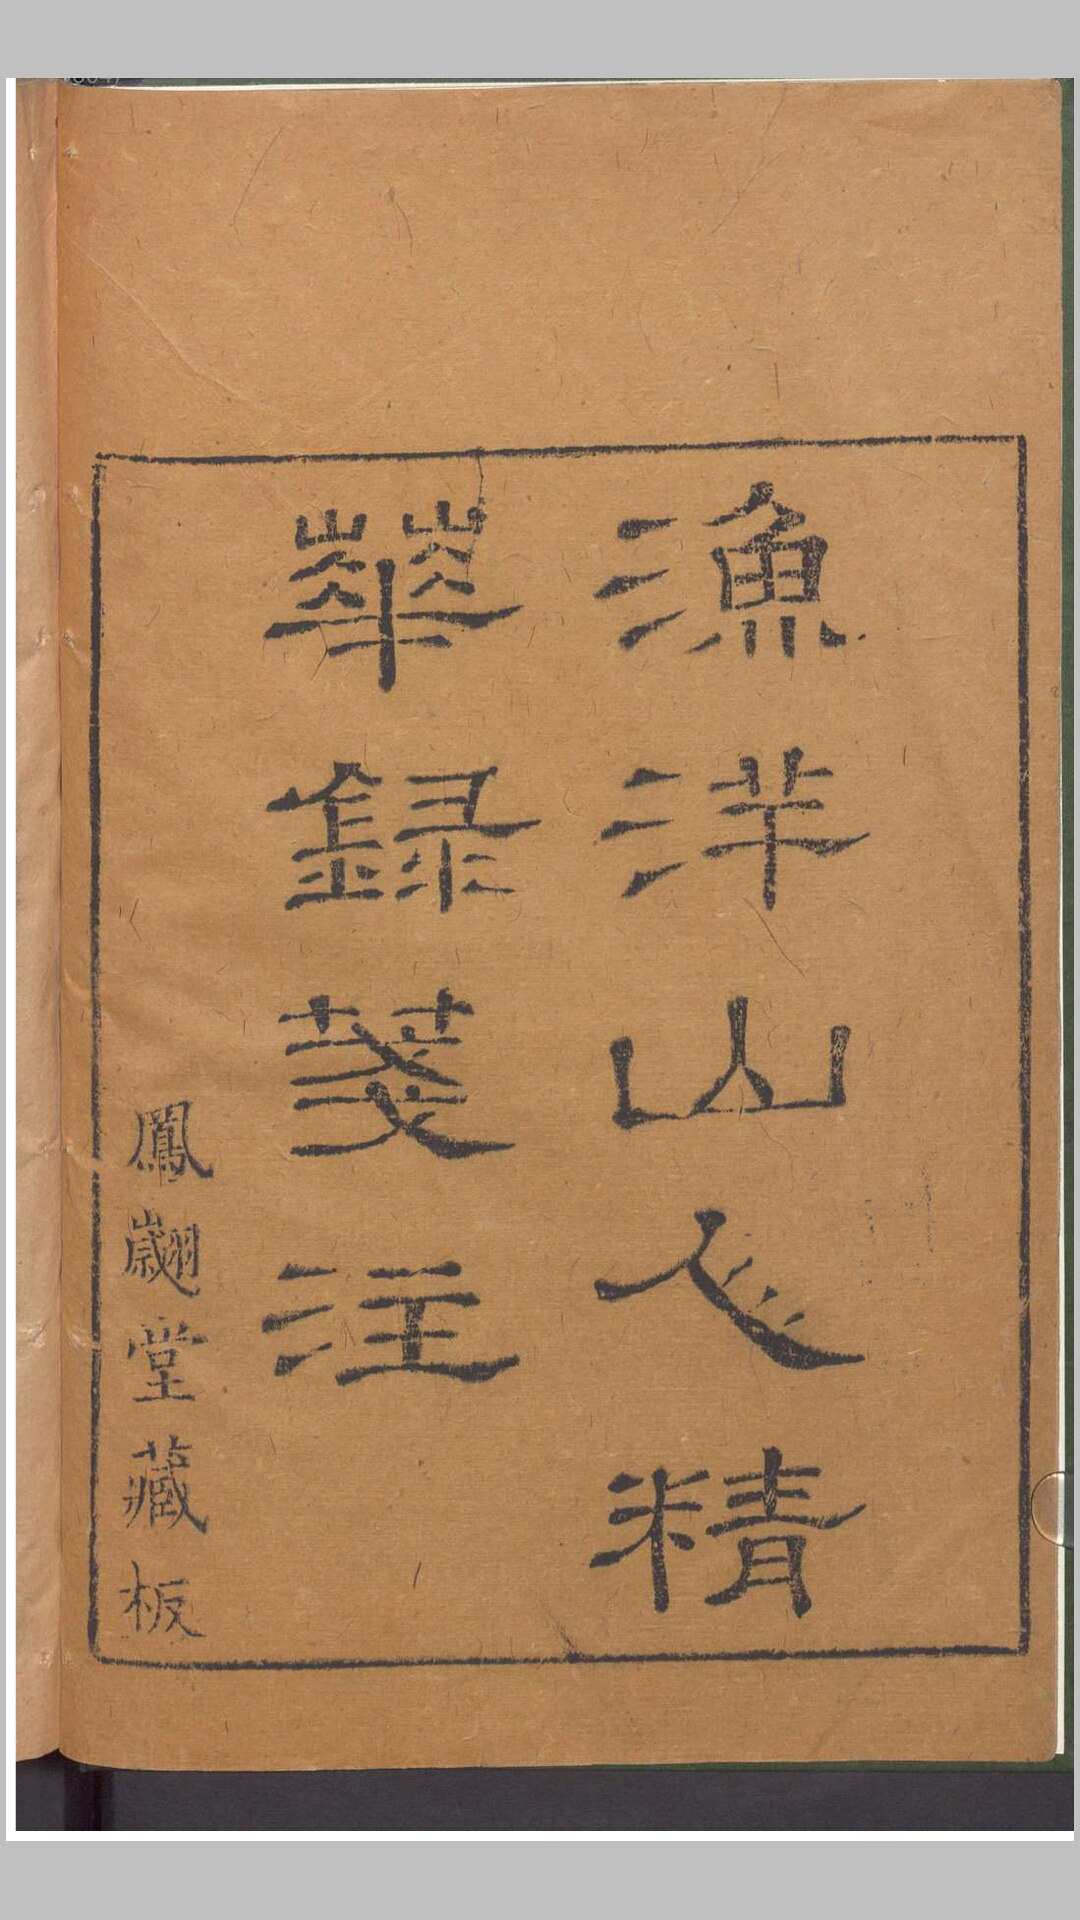 漁洋山人精
華録箋注
鳳翽堂藏板